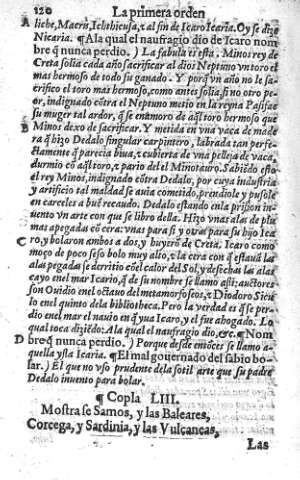 120 La primera orden
A liebe, Macrìs, Ichthieusa, z al fin de Icaro Icaria. Oy se dize
Nicaria. ¶ A la qual el naufragio dio de Icaro nom
bre q̃ nunca perdio. ) La fabula es esta. Minos rey de
Creta solia cada año sacrificar al dios Neptuno vn toro el
mas hermoso de todo su ganado. Y porq̃ vn año no le sa-
crifico el toro mas hermoso, como antes solia, si no otro pe-
or, indignado cõtra el Neptuno metio en la reyna Pasifae
su muger tal ardor, q̃ se enamoro de aq̃l toro hermoso que
B Minos dexo de sacrificar. Y metida en vna vaca de made
ra q̃ hizo Dedalo singular carpintero, labrada tan perfe-
ctamente q̃ parecia biua, z cubierta de vna pelleja de vaca,
durmio cõ aq̃l toro, z pario del el Minotauro. Sabiẽdo esto
el rey Minos, indignado cõtra Dedalo, por cuya industria
y artificio tal maldad se auia cometido, prendiole y pusole
en carceles a buẽ recaudo. Dedalo estando en la prision in-
uento vn arte con que se libro della. Hizo vnas alas de plu
mas apegadas cõ cera: vnas para si y otras para su hijo Ica
C ro, y bolaron ambos a dos y huyerõ de Creta. Icaro como
moço de poco seso bolo muy alto, z la cera con q̃ estauã las
alas pegadas se derritio cõ el calor del Sol, y desechas las alas
cayo en el mar Icario, q̃ de su nombre se llamo assi: auctores
son Ouidio en el octauo del metamorfoseos, z Diodoro Sicu
lo en el quinto dela bibliotheca. Pero la verdad es q̃ se per-
dio en el mar el nauio en q̃ yua Icaro, y el fue ahogado. Lo
qual toca diziẽdo: A la qual el naufragio dio, &c. ¶ Nom
D bre q̃ nunca perdio. ) Porque desde entõces se llamo a-
quella ysla Icaria. ¶ El mal gouernado del sabio bo-
lar. ) El que no vso prudente dela sotil arte que su padre
Dedalo inuento para bolar.
¶ Copla LIII.
Mostra se Samos, y las Baleares,
Corcega, y Sardinia, y las Vulcaneas,
Las